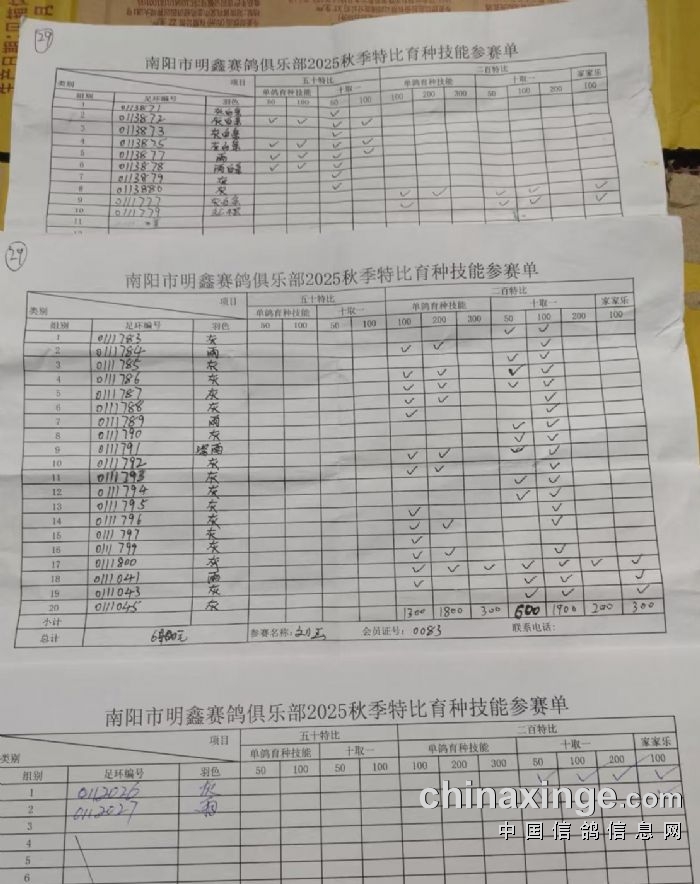 29
南阳市明鑫赛鸽俱乐部2025秋季特比育种技能参赛单
类别 项目 五十特比 二百特比
单鸽育种技能 十取一 单鸽育种技能 十取一 家家乐
组别 足环编号 羽色 50 100 50 100 100 200 300 50 100 200 100
1 0113871
2 0113872 灰白条 ✓ ✓ ✓ ✓
3 0113873 灰白条 ✓
4 0113875 灰白条 ✓ ✓ ✓ ✓
5 0113877 雨 ✓ ✓ ✓ ✓
6 0113878 雨白条 ✓ ✓ ✓
7 0113879 灰 ✓
8 0113880 灰 ✓ ✓ ✓ ✓ ✓
9 0111777 灰白条 ✓ ✓ ✓ ✓
10 0111779
11
29
南阳市明鑫赛鸽俱乐部2025秋季特比育种技能参赛单
类别 项目 五十特比 二百特比
单鸽育种技能 十取一 单鸽育种技能 十取一 家家乐
组别 足环编号 羽色 50 100 50 100 100 200 300 50 100 200 100
1 0111783 灰 ✓ ✓
2 0111784 雨 ✓ ✓ ✓
3 0111785 灰 ✓ ✓
4 0111786 灰 ✓ ✓ ✓ ✓
5 0111787 灰 ✓ ✓ ✓ ✓
6 0111788 灰 ✓ ✓ ✓
7 0111789 雨 ✓ ✓
8 0111790 灰 ✓ ✓
9 0111791 深雨 ✓ ✓ ✓ ✓
10 0111792 灰 ✓ ✓ ✓
11 0111793 灰 ✓ ✓
12 0111794 灰 ✓ ✓
13 0111795 灰 ✓ ✓
14 0111796 灰 ✓ ✓ ✓
15 0111797 灰 ✓
16 0111799 灰 ✓ ✓ ✓
17 0111800 灰 ✓ ✓ ✓ ✓ ✓ ✓ ✓
18 0111041 雨 ✓ ✓ ✓ ✓
19 0111043 灰 ✓ ✓ ✓
20 0111045 灰
小计 1300 1800 300 600 1900 200 300
总计 参赛名称: 会员证号: 0083 联系电话:
南阳市明鑫赛鸽俱乐部2025秋季特比育种技能参赛单
类别 项目 五十特比 二百特比
单鸽育种技能 十取一 单鸽育种技能 十取一 家家乐
组别 足环编号 羽色 50 100 50 100 100 200 300 50 100 200 100
1 0112026 灰 ✓ ✓ ✓ ✓
2 0112027 雨
3
4
5
6
chinaxinge.com
中国信鸽信息网